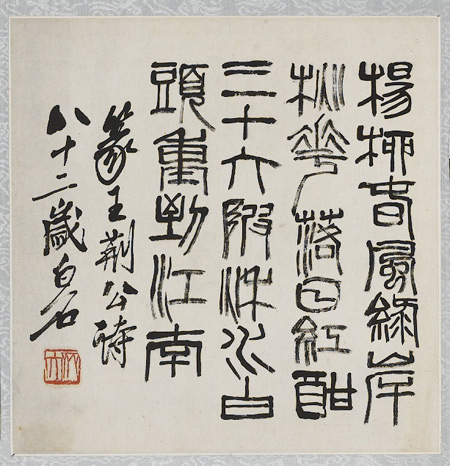 楊柳春風綠岸
桃花落日紅酣
三十六陂流水白
頭重到江南
篆王荊公詩
八十二歲白石